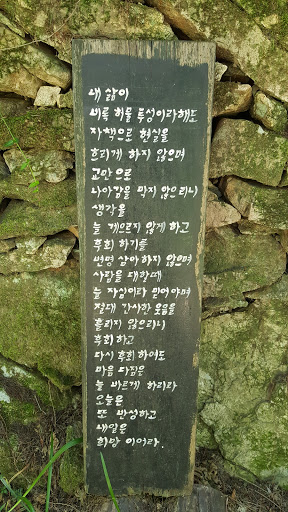 내 삶이
비록 허물 투성이라해도
자책으로 현실을
흐리게 하지 않으며
교만으로
나아감을 막지 않으리니
생각을
늘 게으르지 않게 하고
후회하기를
변명 삼아하지 않으며
사람을 대할때
늘 진실이라 믿어야하며
절대 간사한 웃음을
흘리지 않으리니
후회하고
다시 후회하여도
마음 다짐은
늘 바르게 하리라
오늘은
또 반성하고
내일은
희망 이어라.